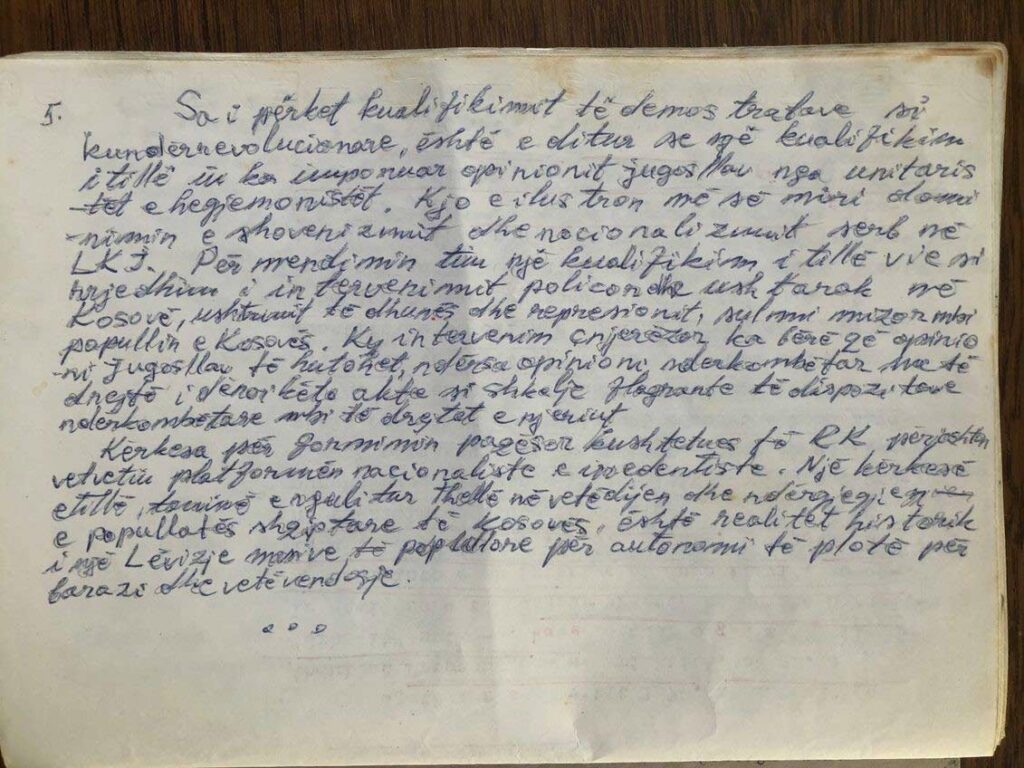 5. Sa i përket kualifikimit të demostratave si
kundërrevolucionare, është e ditur se një kualifikim
i tillë iu ka imponuar opinionit jugosllav nga unitaris
-tët e hegjemonistët. Kjo e ilustron më së miri domi
-nimin e shovenizmit dhe nacionalizmit serb në
LKJ. Për mendimin tim një kualifikim i tillë vie si
rrjedhim i intervenimit policor dhe ushtarak në
Kosovë, ushtrimit të dhunës dhe represionit, sulmi mizor mbi
popullin e Kosovës. Ky intervenim çnjerëzor ka bërë që opinio
-ni jugosllav të hutohet, ndërsa opinioni nderkombëtar me të
drejtë i dënoi këto akte si shkelje flagrante të dispozitave
nderkombëtare mbi të drejtat e njeriut
Kërkesa për formimin kushtetues të RK përjashton
vetvetiu platformën nacionaliste e iredentiste. Një kërkesë
e tillë, e ngulitur thellë në vetëdijen dhe ndërgjegjen
e popullatës shqiptare të Kosovës, është realitet historik
i një Lëvizje masive të popullore për autonomi të plotë për
barazi dhe vetëvendosje.
...